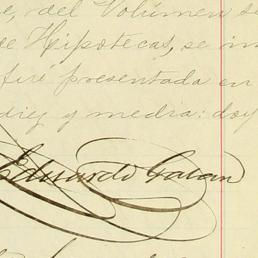 e, del Volúmen se
de Hipotecas, se in
fué presentada en
diez y media: doy
Eduardo Galan